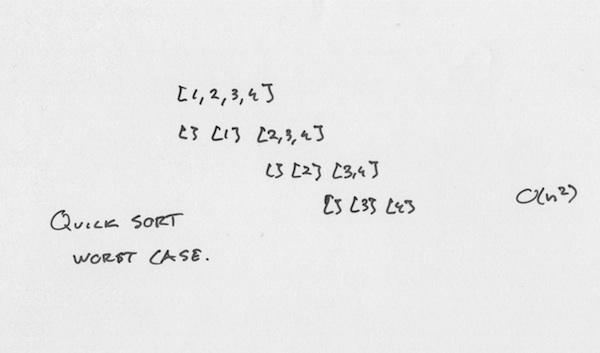 [1,2,3,4]
[] [1] [2,3,4]
[] [2] [3,4]
[] [3] [4]
O(n²)
QUICK SORT
WORST CASE.